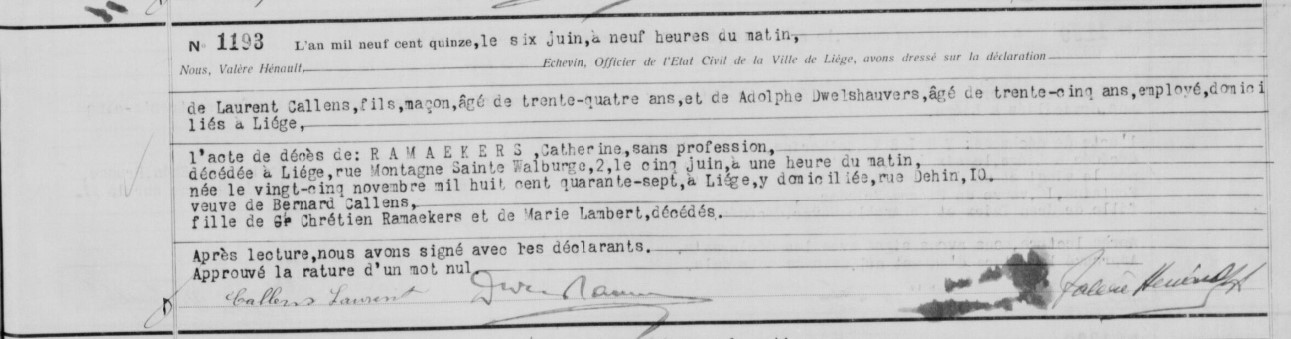 N° 1193 L'an mil neuf cent quinze, le six juin, à neuf heures du matin,
Nous, Valère Hénault, Echevin, Officier de l'Etat Civil de la Ville de Liége, avons dressé sur la déclaration
de Laurent Callens, fils, maçon, âgé de trente-quatre ans, et de Adolphe Dwelshauvers, âgé de trente-cinq ans, employé, domici
liés à Liége,
l'acte de décès de: R A M A E K E R S , Catherine, sans profession,
décédée à Liége, rue Montagne Sainte Walburge, 2, le cinq juin, à une heure du matin,
née le vingt-cinq novembre mil huit cent quarante-sept, à Liége, y domiciliée, rue Dehin, IO.
veuve de Bernard Callens,
fille de Chrétien Ramaekers et de Marie Lambert, décédés.
Après lecture, nous avons signé avec les déclarants.
Approuvé la rature d'un mot nul
Callens Laurent Valère Hénault